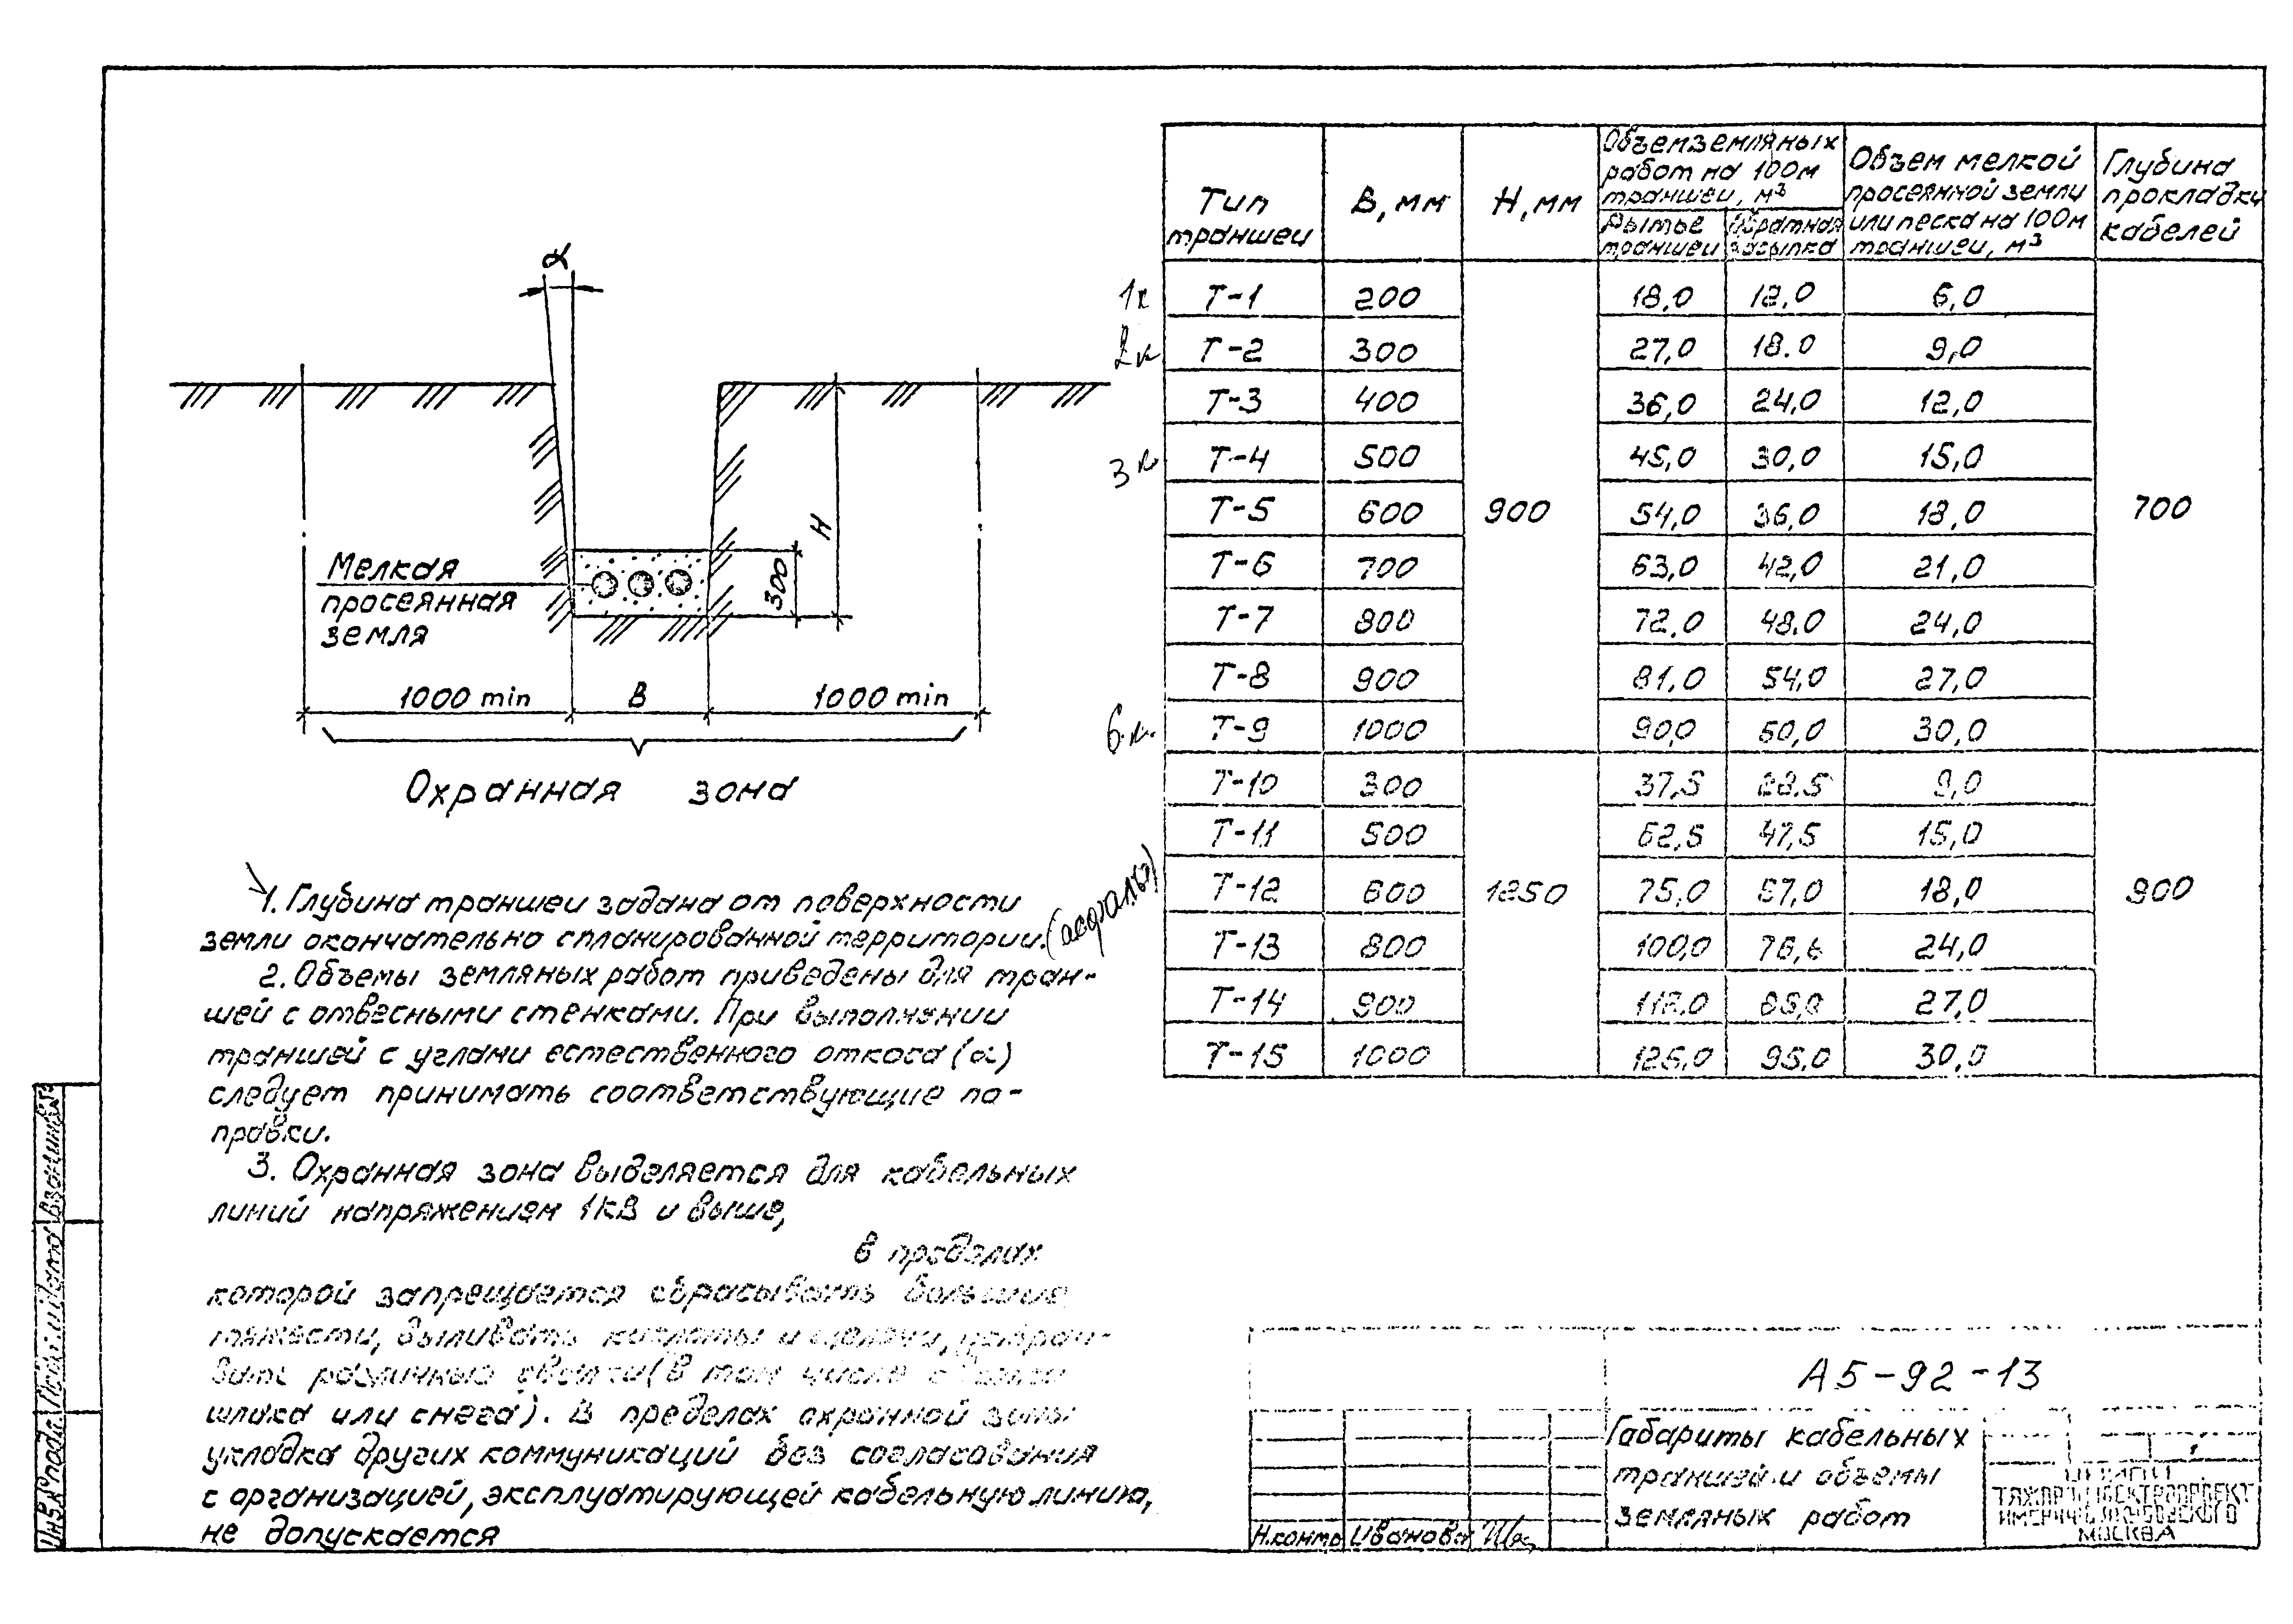 α
Мелкая
просеянная
земля
300
H
1000 min
B
1000 min
Охранная зона
1. Глубина траншеи задана от поверхности
земли окончательно спланированной территории. (асфальт)
2. Объемы земляных работ приведены для тран-
шей с отвесными стенками. При выполнении
траншей с углами естественного откоса (α)
следует принимать соответствующие по-
правки.
3. Охранная зона выделяется для кабельных
линий напряжением 1кВ и выше,
в пределах
которой запрещается сбрасывать большие
тяжести, выливать кислоты и щелочи, устраи-
вать различные свалки (в том числе свалки
шлака или снега). В пределах охранной зоны
укладка других коммуникаций без согласования
с организацией, эксплуатирующей кабельную линию,
не допускается
Тип траншеи B, мм H, мм Объем земляных работ на 100м траншеи, м³ Объем мелкой просеянной земли или песка на 100м траншеи, м³ Глубина прокладки кабелей
Рытье траншеи Обратная засыпка
1к Т-1 200 18,0 12.0 6,0
2к Т-2 300 27,0 18.0 9,0
Т-3 400 36,0 24,0 12,0
3к Т-4 500 45,0 30,0 15,0
Т-5 600 900 54,0 36,0 18,0 700
Т-6 700 63,0 42,0 21,0
Т-7 800 72,0 48.0 24,0
Т-8 900 81,0 54,0 27,0
6к. Т-9 1000 90,0 60,0 30,0
Т-10 300 37,5 28.5 9,0
Т-11 500 62,5 47,5 15,0
Т-12 600 1250 75,0 57,0 18,0 900
Т-13 800 100,0 24,0
Т-14 900 112.0 27,0
Т-15 1000 125,0 95,0 30,0
А5-92-13
Габариты кабельных
траншей и объемы
земляных работ
ТЯЖПРОМЭЛЕКТРОПРОЕКТ
МОСКВА
Н.контр Иванова
Инв.№подл. Подп. и дата Взам.инв.№